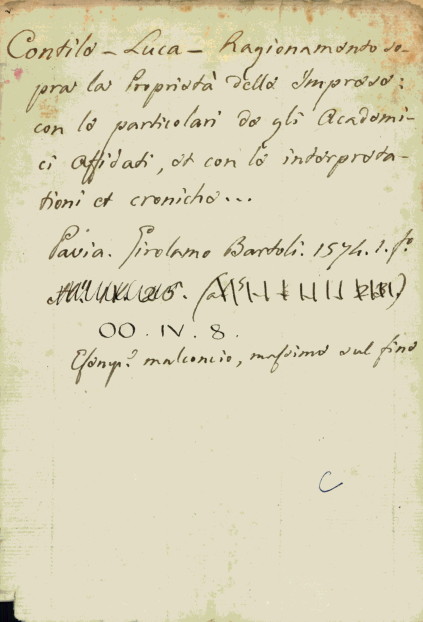 Contile - Luca - Ragionamento so-
pra la Proprietà delle Imprese:
con le particolari de gli Academi-
ci Affidati, et con le interpreta-
tioni et croniche...
Pavia. Girolamo Bartoli. 1574. 1. fo
OO.IV.8.
Esemp.e malconcio, massime sul fine
C